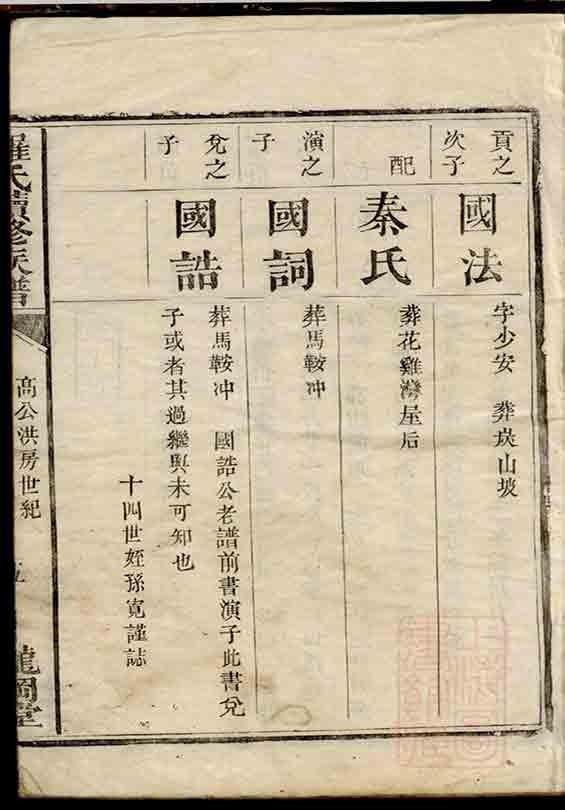 貢之
次子
國法
字少安 葬㷋山坡
配
秦氏
葬花雞灣屋后
演之
子
國詞
葬馬鞍冲
兊之
子
國誥
葬馬鞍冲 國誥公老譜前書演子此書兊
子或者其過繼與未可知也
十四世姪孫寬謹誌
羅氏續修族譜
高公洪房世紀
龍圖堂